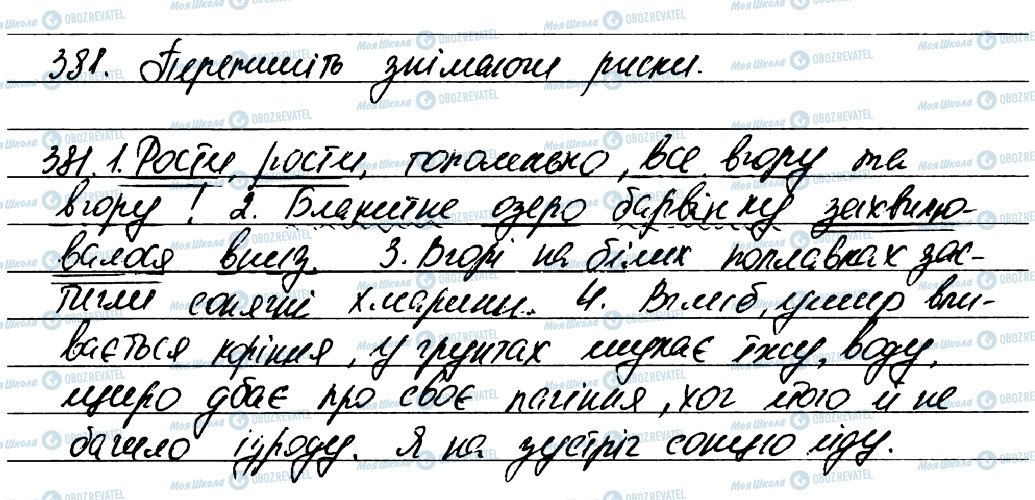 381. Перепишіть знімаючи риски.
381. 1. Рости, рости, тополенько, все вгору та
вгору! 2. Блакитне озеро барвінку захвилю-
валося вниз. 3. Вгорі на білих поплавках зас-
тигли сонячні хмарини. 4. Вглиб, ушир впи-
вається коріння, у грунтах шукає їжу, воду,
щиро дбає про своє пагіння, хоч його й не
бачило ізроду. Я на зустріч сонцю йду.